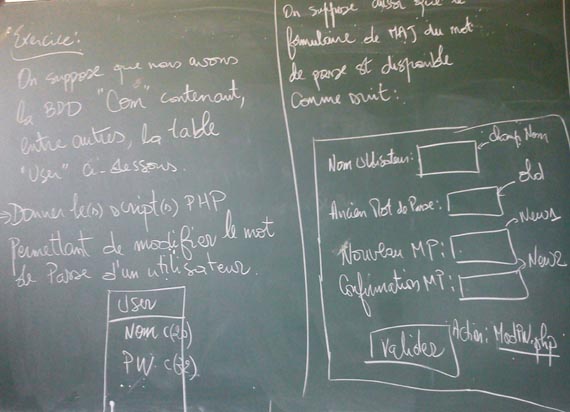 Exercice:
On suppose que nous avons
la BDD "Com" contenant,
entre autres, la table
"User" ci-dessous.
→ Donner le(s) script(s) PHP
Permettant de modifier le mot
de Passe d'un utilisateur.
User
Nom c(20)
PW c(32)
On suppose aussi que le
formulaire de MAJ du mot
de passe est disponible
Comme suit:
champ Nom
Nom Utilisateur:
old
Ancien Mot de Passe:
New1
Nouveau MP:
New2
Confirmation MP:
Valider
Action: ModPW.php